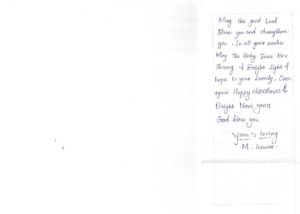 May the good Lord
Bless you and strengthen
you. In all your works
May The Baby Jesus be a
Strong & Bright Light of
hope to your family. Once
again Happy christmas &
Bright New year
God bless you
your's loving
M.